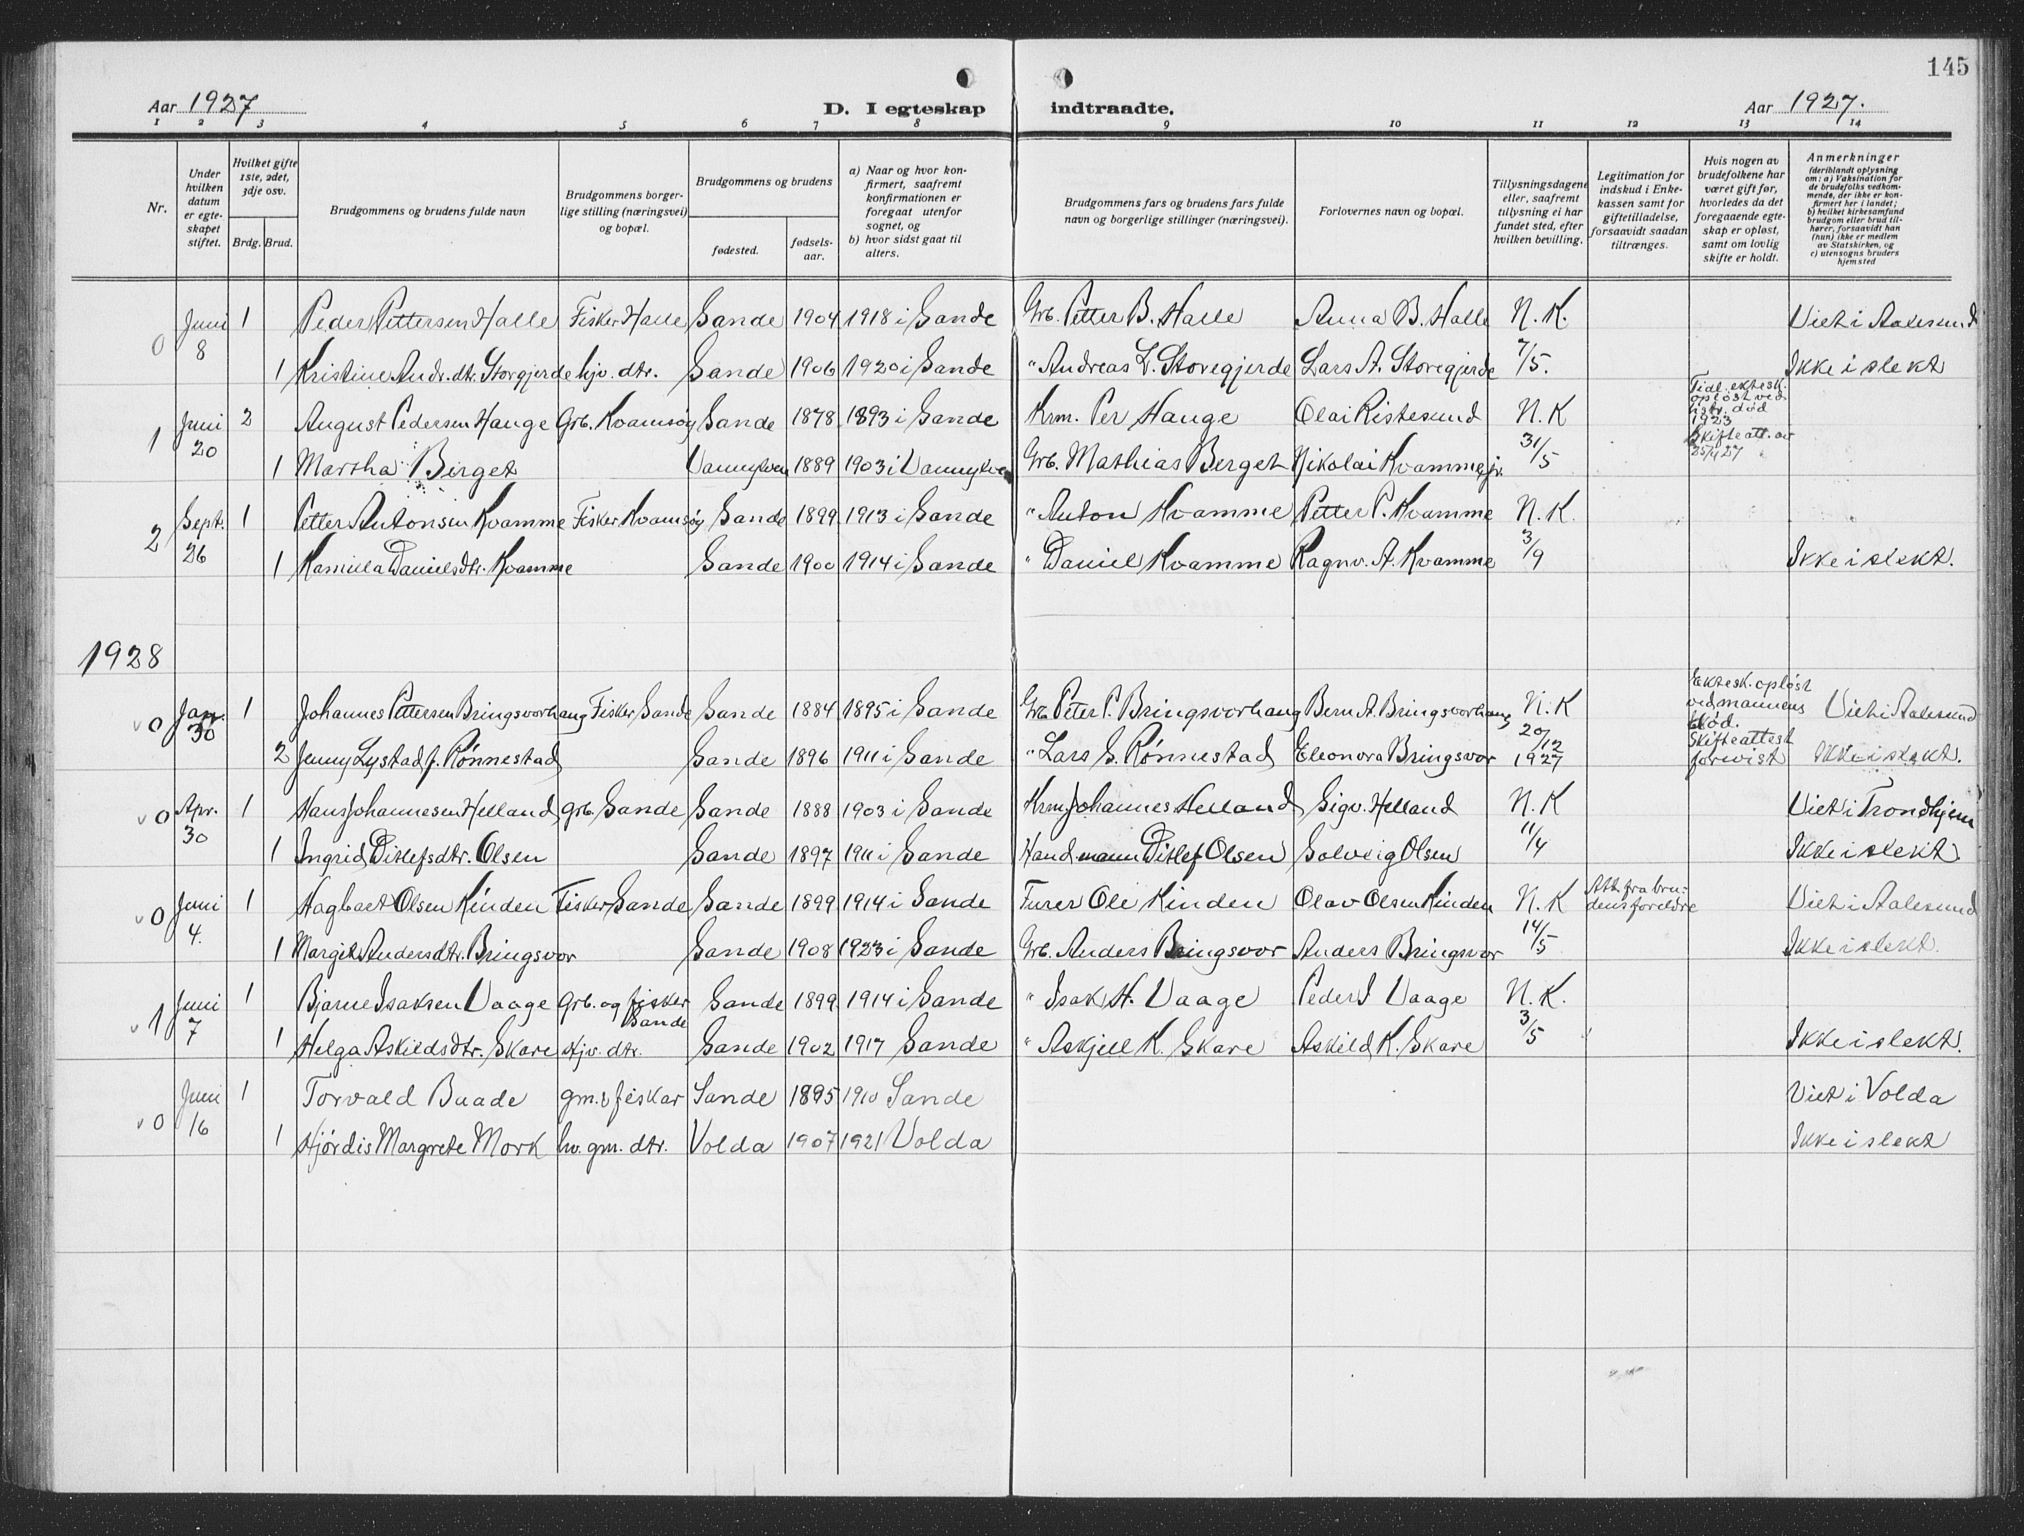 145
Aar 1927 D. I egteskap indtraadte. Aar 1927.
1 2 3 4 5 6 7 8 9 10 11 12 13 14
Nr.
Under hvilken datum er egteskapet stiftet.
Hvilket gifte 1ste, 2det, 3dje osv.
Brdg. Brud.
Brudgommens og brudens fulde navn
Brudgommens borgerlige stilling (næringsvei) og bopæl.
Brudgommens og brudens
fødested.
fødselsaar.
a) Naar og hvor konfirmert, saafremt konfirmationen er foregaat utenfor sognet, og
b) hvor sidst gaat til alters.
Brudgommens fars og brudens fars fulde navn og borgerlige stillinger (næringsvei).
Forlovernes navn og bopæl.
Tillysningsdagene eller, saafremt tillysning ei har fundet sted, efter hvilken bevilling.
Legitimation for indskud i Enkekassen samt for giftetilladelse, forsaavidt saadan tiltrænges.
Hvis nogen av brudefolkene har været gift før, hvorledes da det foregaaende egteskap er opløst, samt om lovlig skifte er holdt.
Anmerkninger (deriblandt oplysning om: a) Vaksination for de brudefolks vedkommende, der ikke er konfirmert her i landet; b) hvilket kirkesamfund brudgom eller brud tilhører, forsaavidt han (hun) ikke er medlem av Statskirken, og c) utensogns bruders hjemsted
0 Juni 8 1 Peder Pettersen Halle Fisker Halle Sande 1904 1918 i Sande Grb. Petter B. Halle Anna B. Halle N. K. Viet i Aalesund
1 Kristine Andr. dtr. Storegjerde hjv. dtr. Sande 1906 1920 i Sande " Andreas L. Storegjerde Lars A. Storegjerde 7/5. Ikke i slekt
1 Juni 20 2 August Pedersen Hauge Grb. Kvamsøy Sande 1878 1893 i Sande Krm. Per Hauge Olai Ristesund N. K Tidl. ektesk. opløst ved hstr. død 1923 Skifteatt. av 25/4 27
1 Martha Birget Vannylven 1889 1903 i Vannylven Grb. Mathias Berget Nikolai Kvamme jr. 31/5
2 Sept. 26 1 Petter Antonsen Kvamme Fisker Kvamsøy Sande 1899 1913 i Sande " Anton Kvamme Petter P. Kvamme N. K.
1 Kamilla Danielsdtr. Kvamme Sande 1900 1914 i Sande " Daniel Kvamme Ragnv. A. Kvamme 3/9 Ikke i slekt.
1928
v 0 Jan. 30 1 Johannes Pettersen Bringsvorhaug Fisker Sande Sande 1884 1895 i Sande Grb. Peter P. Bringsvorhaug Bern A. Bringsvorhaug N. K Ektesk. opløst ved mannens død. Skifteattest forevist Viet i Aalesund
2 Jenny Lystad f. Rønnestad Sande 1896 1911 i Sande " Lars S. Rønnestad Eleonora Bringsvor 20/12 1927 Ikke i slekt.
v 0 Apr. 30 1 Hans Johannesen Helland Grb. Sande Sande 1888 1903 i Sande Krm Johannes Helland Sigv. Helland N. K Viet i Trondhjem
1 Ingrid Ditlefsdtr. Olsen Sande 1897 1911 i Sande Handmann Ditlef Olsen Solveig Olsen 11/4 Ikke i slekt
v 0 Juni 4. 1 Hagbart Olsen Kinden Fisker Sande Sande 1899 1914 i Sande Furer Ole Kinden Olav Olsen Kinden N. K Att. fra brudens foreldre Viet i Aalesund
1 Margit Andersdtr. Bringsvor Sande 1908 1923 i Sande Grb. Anders Bringsvor Anders Bringsvor 14/5 Ikke i slekt.
v 1 Juni 7 1 Bjarne Isaksen Vaage Grb. og fisker Sande Sande 1899 1914 i Sande " Isak H. Vaage Peder I Vaage N. K.
1 Helga Askildsdtr. Skare Hjv. dtr. Sande 1902 1917 Sande " Askjell K. Skare Askild K. Skare 3/5 Ikke i slekt.
v 0 Juni 16 1 Torvald Baade gm. & fiskar Sande 1895 1910 Sande Viet i Volda
1 Hjørdis Margrete Mork hv. gm. dtr. Volda 1907 1921 Volda Ikke i slekt